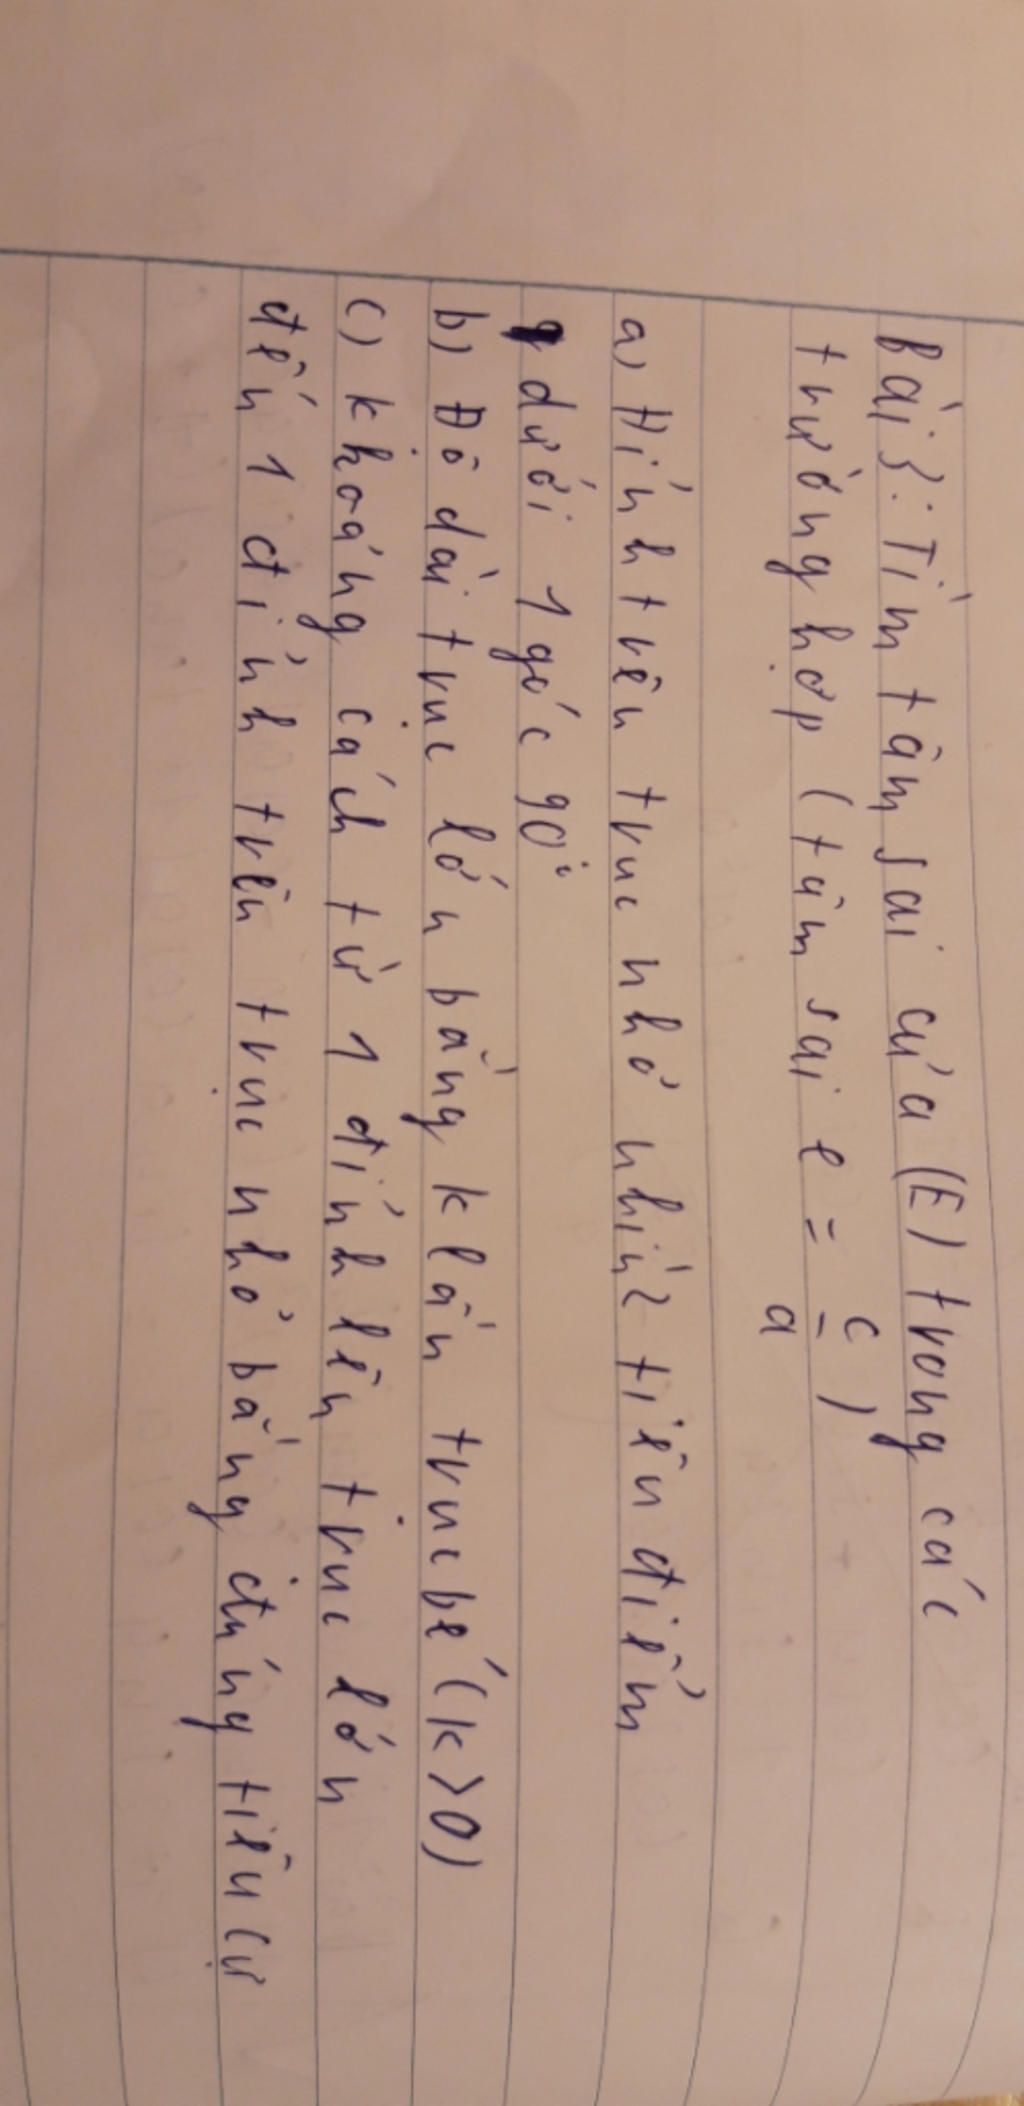 Bài 3: Tìm tâm sai của (E) trong các
trường hợp (tâm sai e = c/a),
a) Đỉnh trên trục nhỏ nhìn 2 tiêu điểm
dưới 1 góc 90°
b) Độ dài trục lớn bằng k lần trục bé (k > 0)
c) khoảng cách từ 1 đỉnh lên trục lớn
đến 1 đỉnh trên trục nhỏ bằng đúng tiêu cự